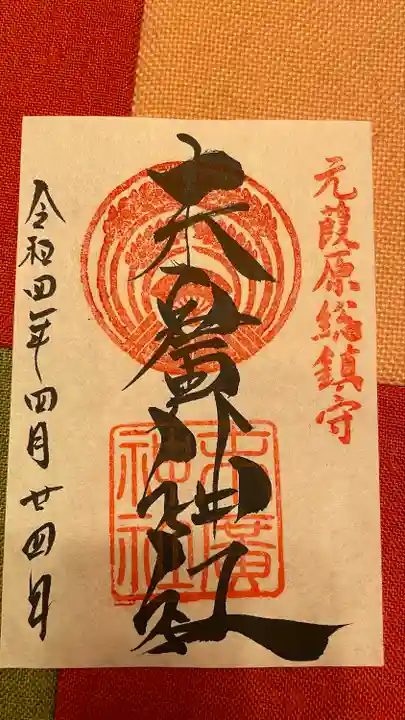 元葭原総鎮守
末廣神社
末廣
神社
令和四年四月廿四日